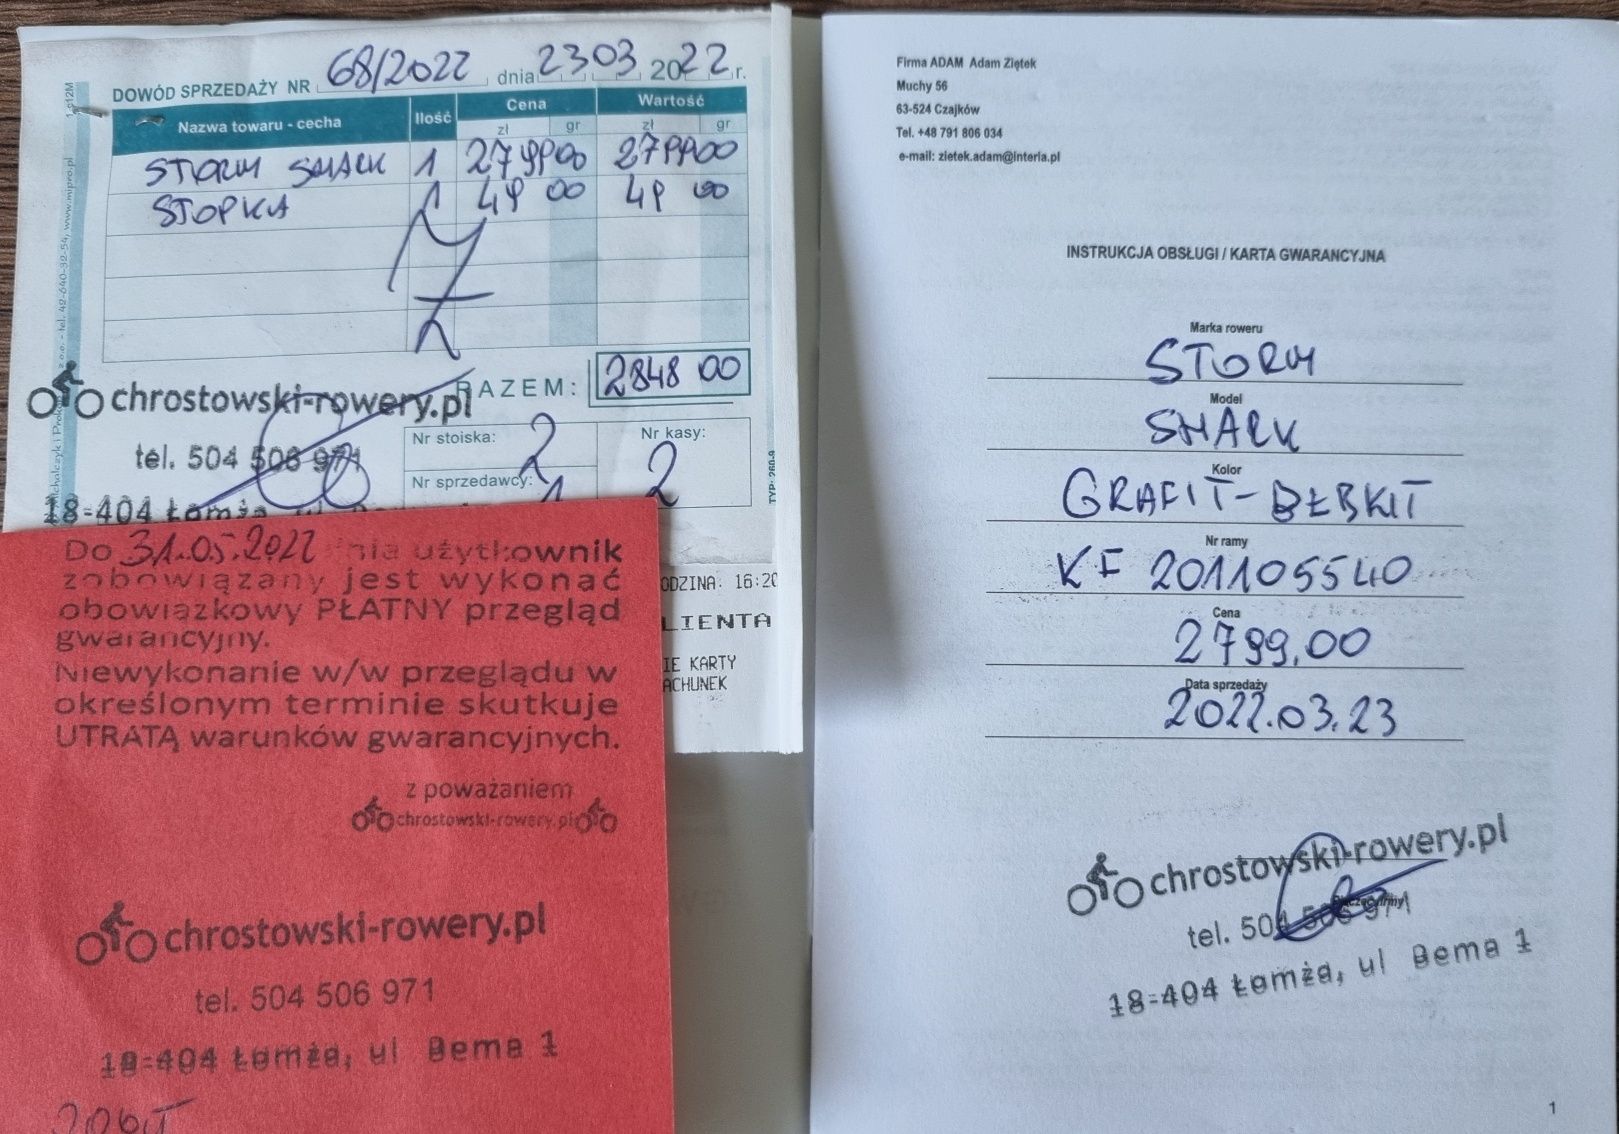 DOWÓD SPRZEDAŻY NR 68/2022 dnia 23 03 2022 r.
Nazwa towaru - cecha Ilość Cena Wartość
zł gr zł gr
STORM SMARK 1 2799 00 2799 00
STOPKA 1 49 00 49 00
RAZEM: 2848 00
chrostowski-rowery.pl
tel. 504 506 971
18-404 Łomża, ul
Nr stoiska: 2 Nr kasy: 2
Nr sprzedawcy: 1
TYP: 260-9
GODZINA: 16:20
KLIENTA
KARTY
RACHUNEK
Do 31.05.2022 dnia użytkownik
zobowiązany jest wykonać
obowiązkowy PŁATNY przegląd
gwarancyjny.
Niewykonanie w/w przeglądu w
określonym terminie skutkuje
UTRATĄ warunków gwarancyjnych.
z poważaniem
chrostowski-rowery.pl
chrostowski-rowery.pl
tel. 504 506 971
18-404 Łomża, ul Bema 1
Firma ADAM Adam Ziętek
Muchy 56
63-524 Czajków
Tel. +48 791 806 034
e-mail: zietek.adam@interia.pl
INSTRUKCJA OBSŁUGI / KARTA GWARANCYJNA
Marka roweru
STORM
Model
SMARK
Kolor
GRAFIT-BŁĘKIT
Nr ramy
KF 201105540
Cena
2799,00
Data sprzedaży
2022.03.23
chrostowski-rowery.pl
tel. 504 506 971
18-404 Łomża, ul Bema 1
1